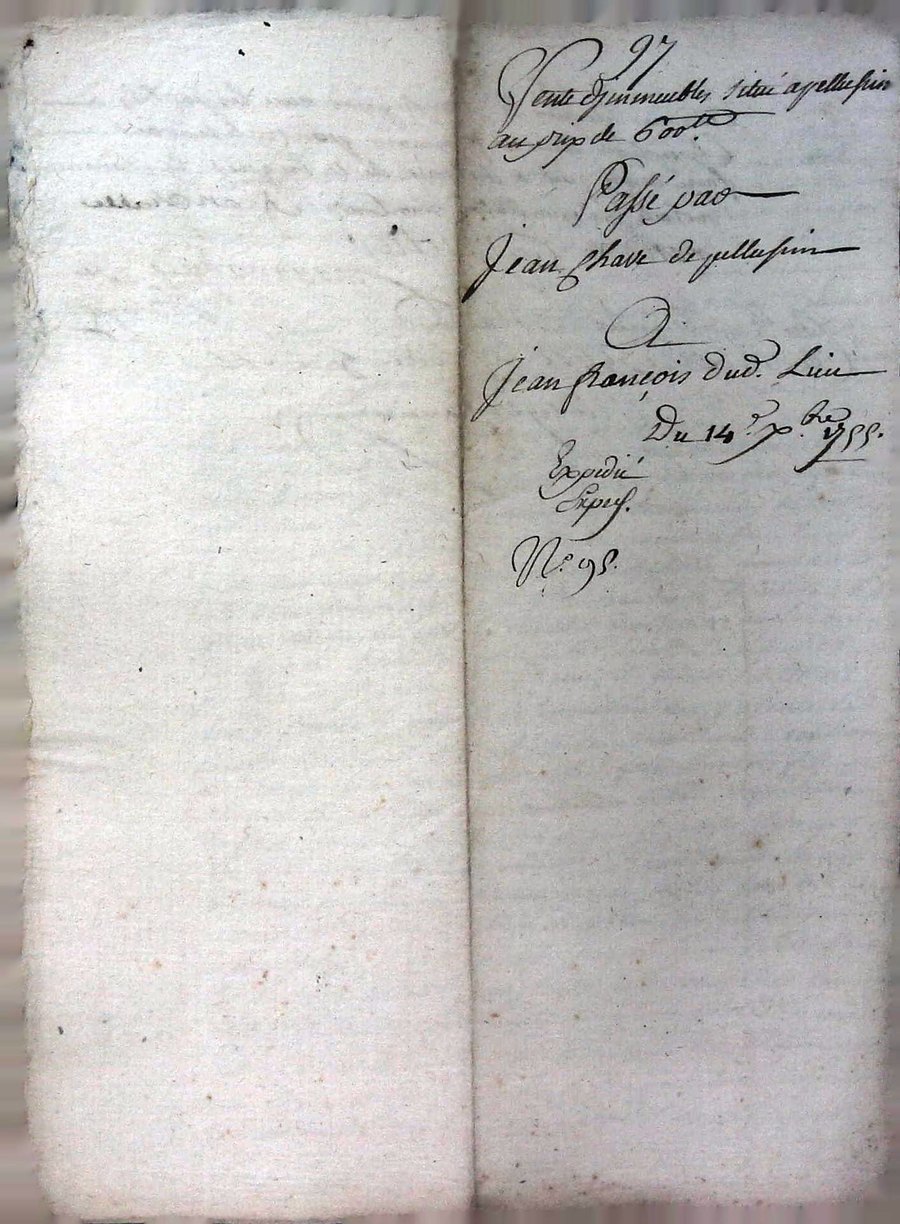 97
Vente d'immeubles situé a pellussin
au prix de 600tt.
Passé par
Jean Chave de pellussin
A
Jean françois dud. Lieu
Du 14e xbre 1755.
Expedié
No. 95.